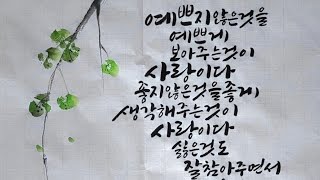 예쁘지않은것을
예쁘게
보아주는것이
사랑이다
좋지않은것을좋게
생각해주는것이
사랑이다
싫은것도
잘참아주면서